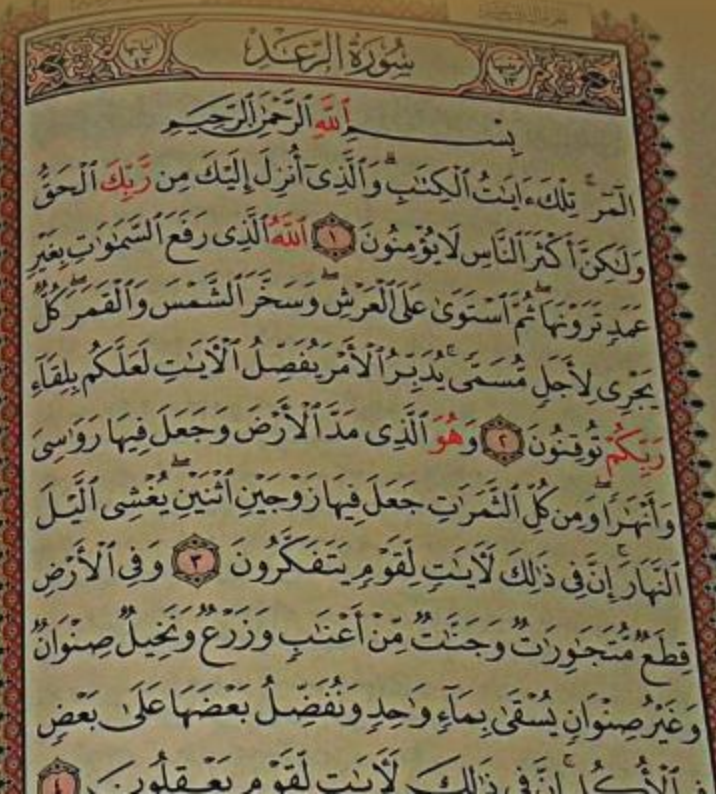 سُورَةُ الرَّعْدِ
بِسْمِ ٱللَّهِ ٱلرَّحْمَٰنِ ٱلرَّحِيمِ
الٓمٓر ۚ تِلْكَ ءَايَٰتُ ٱلْكِتَٰبِ ۗ وَٱلَّذِىٓ أُنزِلَ إِلَيْكَ مِن رَّبِّكَ ٱلْحَقُّ
وَلَٰكِنَّ أَكْثَرَ ٱلنَّاسِ لَا يُؤْمِنُونَ ١ ٱللَّهُ ٱلَّذِى رَفَعَ ٱلسَّمَٰوَٰتِ بِغَيْرِ
عَمَدٍ تَرَوْنَهَا ۖ ثُمَّ ٱسْتَوَىٰ عَلَى ٱلْعَرْشِ ۖ وَسَخَّرَ ٱلشَّمْسَ وَٱلْقَمَرَ ۖ كُلٌّ
يَجْرِى لِأَجَلٍ مُّسَمًّى ۚ يُدَبِّرُ ٱلْأَمْرَ يُفَصِّلُ ٱلْءَايَٰتِ لَعَلَّكُم بِلِقَآءِ
رَبِّكُمْ تُوقِنُونَ ٢ وَهُوَ ٱلَّذِى مَدَّ ٱلْأَرْضَ وَجَعَلَ فِيهَا رَوَٰسِىَ
وَأَنْهَٰرًا ۖ وَمِن كُلِّ ٱلثَّمَرَٰتِ جَعَلَ فِيهَا زَوْجَيْنِ ٱثْنَيْنِ ۖ يُغْشِى ٱلَّيْلَ
ٱلنَّهَارَ ۚ إِنَّ فِى ذَٰلِكَ لَءَايَٰتٍ لِّقَوْمٍ يَتَفَكَّرُونَ ٣ وَفِى ٱلْأَرْضِ
قِطَعٌ مُّتَجَٰوِرَٰتٌ وَجَنَّٰتٌ مِّنْ أَعْنَٰبٍ وَزَرْعٌ وَنَخِيلٌ صِنْوَانٌ
وَغَيْرُ صِنْوَانٍ يُسْقَىٰ بِمَآءٍ وَٰحِدٍ وَنُفَضِّلُ بَعْضَهَا عَلَىٰ بَعْضٍ
فِى ٱلْأُكُلِ ۚ إِنَّ فِى ذَٰلِكَ لَءَايَٰتٍ لِّقَوْمٍ يَعْقِلُونَ ٤